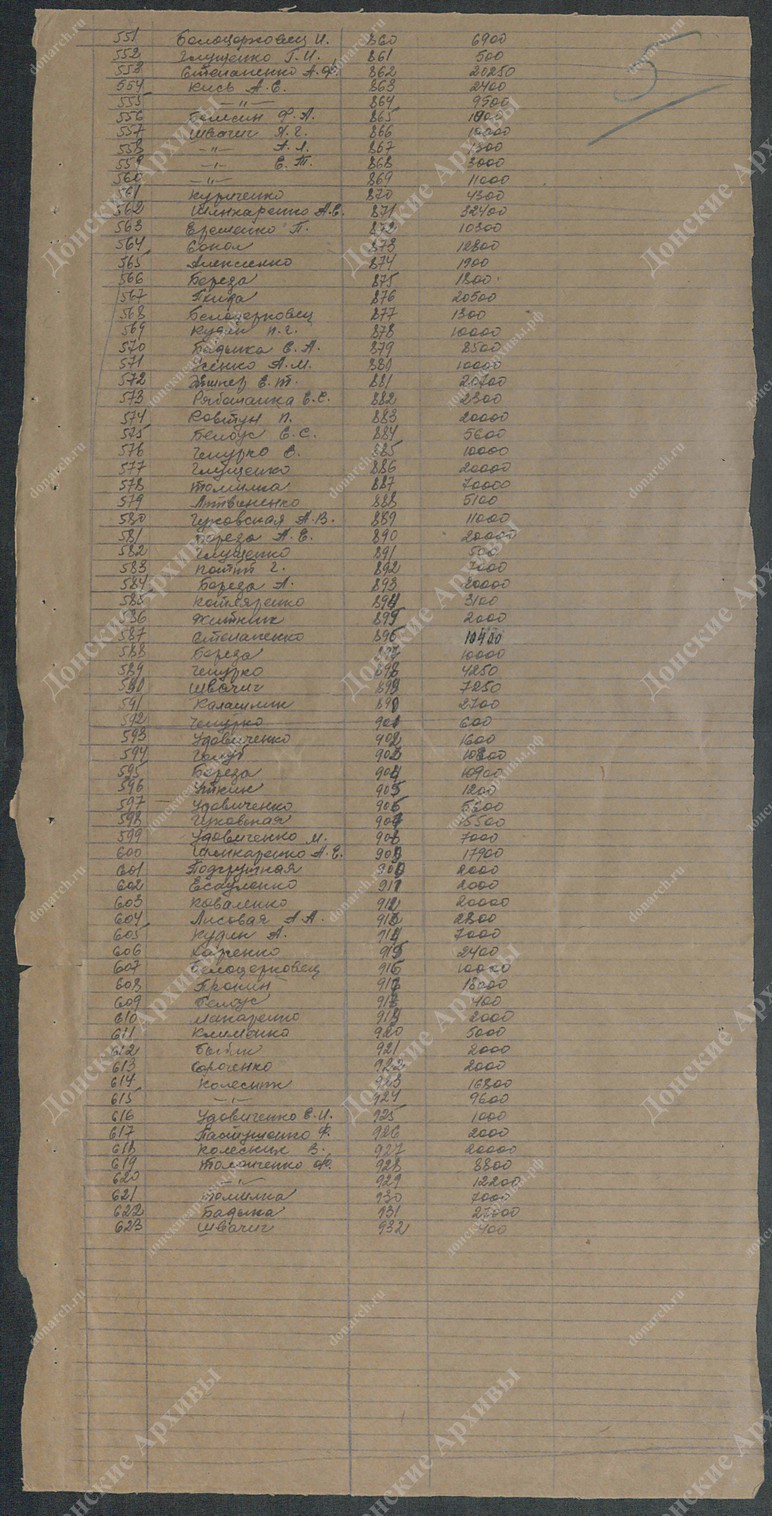 5
551 Белоцерковец И. 860 6900
552 Глущенко Г.И. 861 500
553 Степаненко А.Ф. 862 20250
554 Кись А.Е. 863 2400
555 —"— 864 9500
556 Ф.А. 865
557 Швачич А.Г. 866 10000
558 —"— А.Л. 867 1300
559 —"— Е.Т. 868 3000
560 —"— 869 11000
561 Куриченко 870 4300
562 Шинкаренко А.Е. 871 32400
563 Еременко П. 872 10300
564 Сокол 873 12800
565 Алексеенко 874 1900
566 Береза 875 1800
567 876 20500
568 Белоцерковец 877 1300
569 Кудин П.Г. 878 10000
570 Бадьика Е.А. 879 8500
571 Усенко А.М. 880 10000
572 Е.Т. 881 20700
573 Рябошапка Е.С. 882 2300
574 Ковтун П. 883 20000
575 Белоус Е.С. 884 5600
576 Чепурко Е. 885 10000
577 Глущенко 886 20000
578 Томилка 887 70000
579 Литвиненко 888 5100
580 Чуковская А.В. 889 11000
581 Береза А.Е. 890 20000
582 Глущенко 891 500
583 Г. 892 7000
584 Береза А. 893 20000
585 Котляренко 894 3100
586 Житник 895 2000
587 Степаненко 896
588 Береза 897 10000
589 Чепурко 898 4250
590 Швачич 899 7250
591 Калашник 2700
592 Чепурко 901 600
593 Удовиченко 902 1600
594 903
595 Береза 904 10900
596 Уткин 905 1200
597 Удовиченко 906
598 907 15500
599 Удовиченко М. 908 7000
600 Шинкаренко А.Е. 909 17900
601 Подгрушная 2000
602 Есауленко 911 2000
603 Коваленко 912 20000
604 Лисовая А.А. 913 2800
605 Кудин А. 914 7000
606 915 2400
607 Белоцерковец 916 10000
608 Пронин 917 18000
609 Белоус 918 400
610 Макаренко 919 2000
611 Клименко 920 5000
612 921 2000
613 Сороченко 922 2000
614 Колесник 923 16800
615 —"— 924 9600
616 Удовиченко Е.И. 925 1000
617 Пастушенко Ф. 926 2000
618 Колесник В. 927 20000
619 928 8800
620 —"— 929 12200
621 Томилка 930 7000
622 Бадьика 931 27000
623 Швачич 932 400
Донские Архивы
donarch.ru